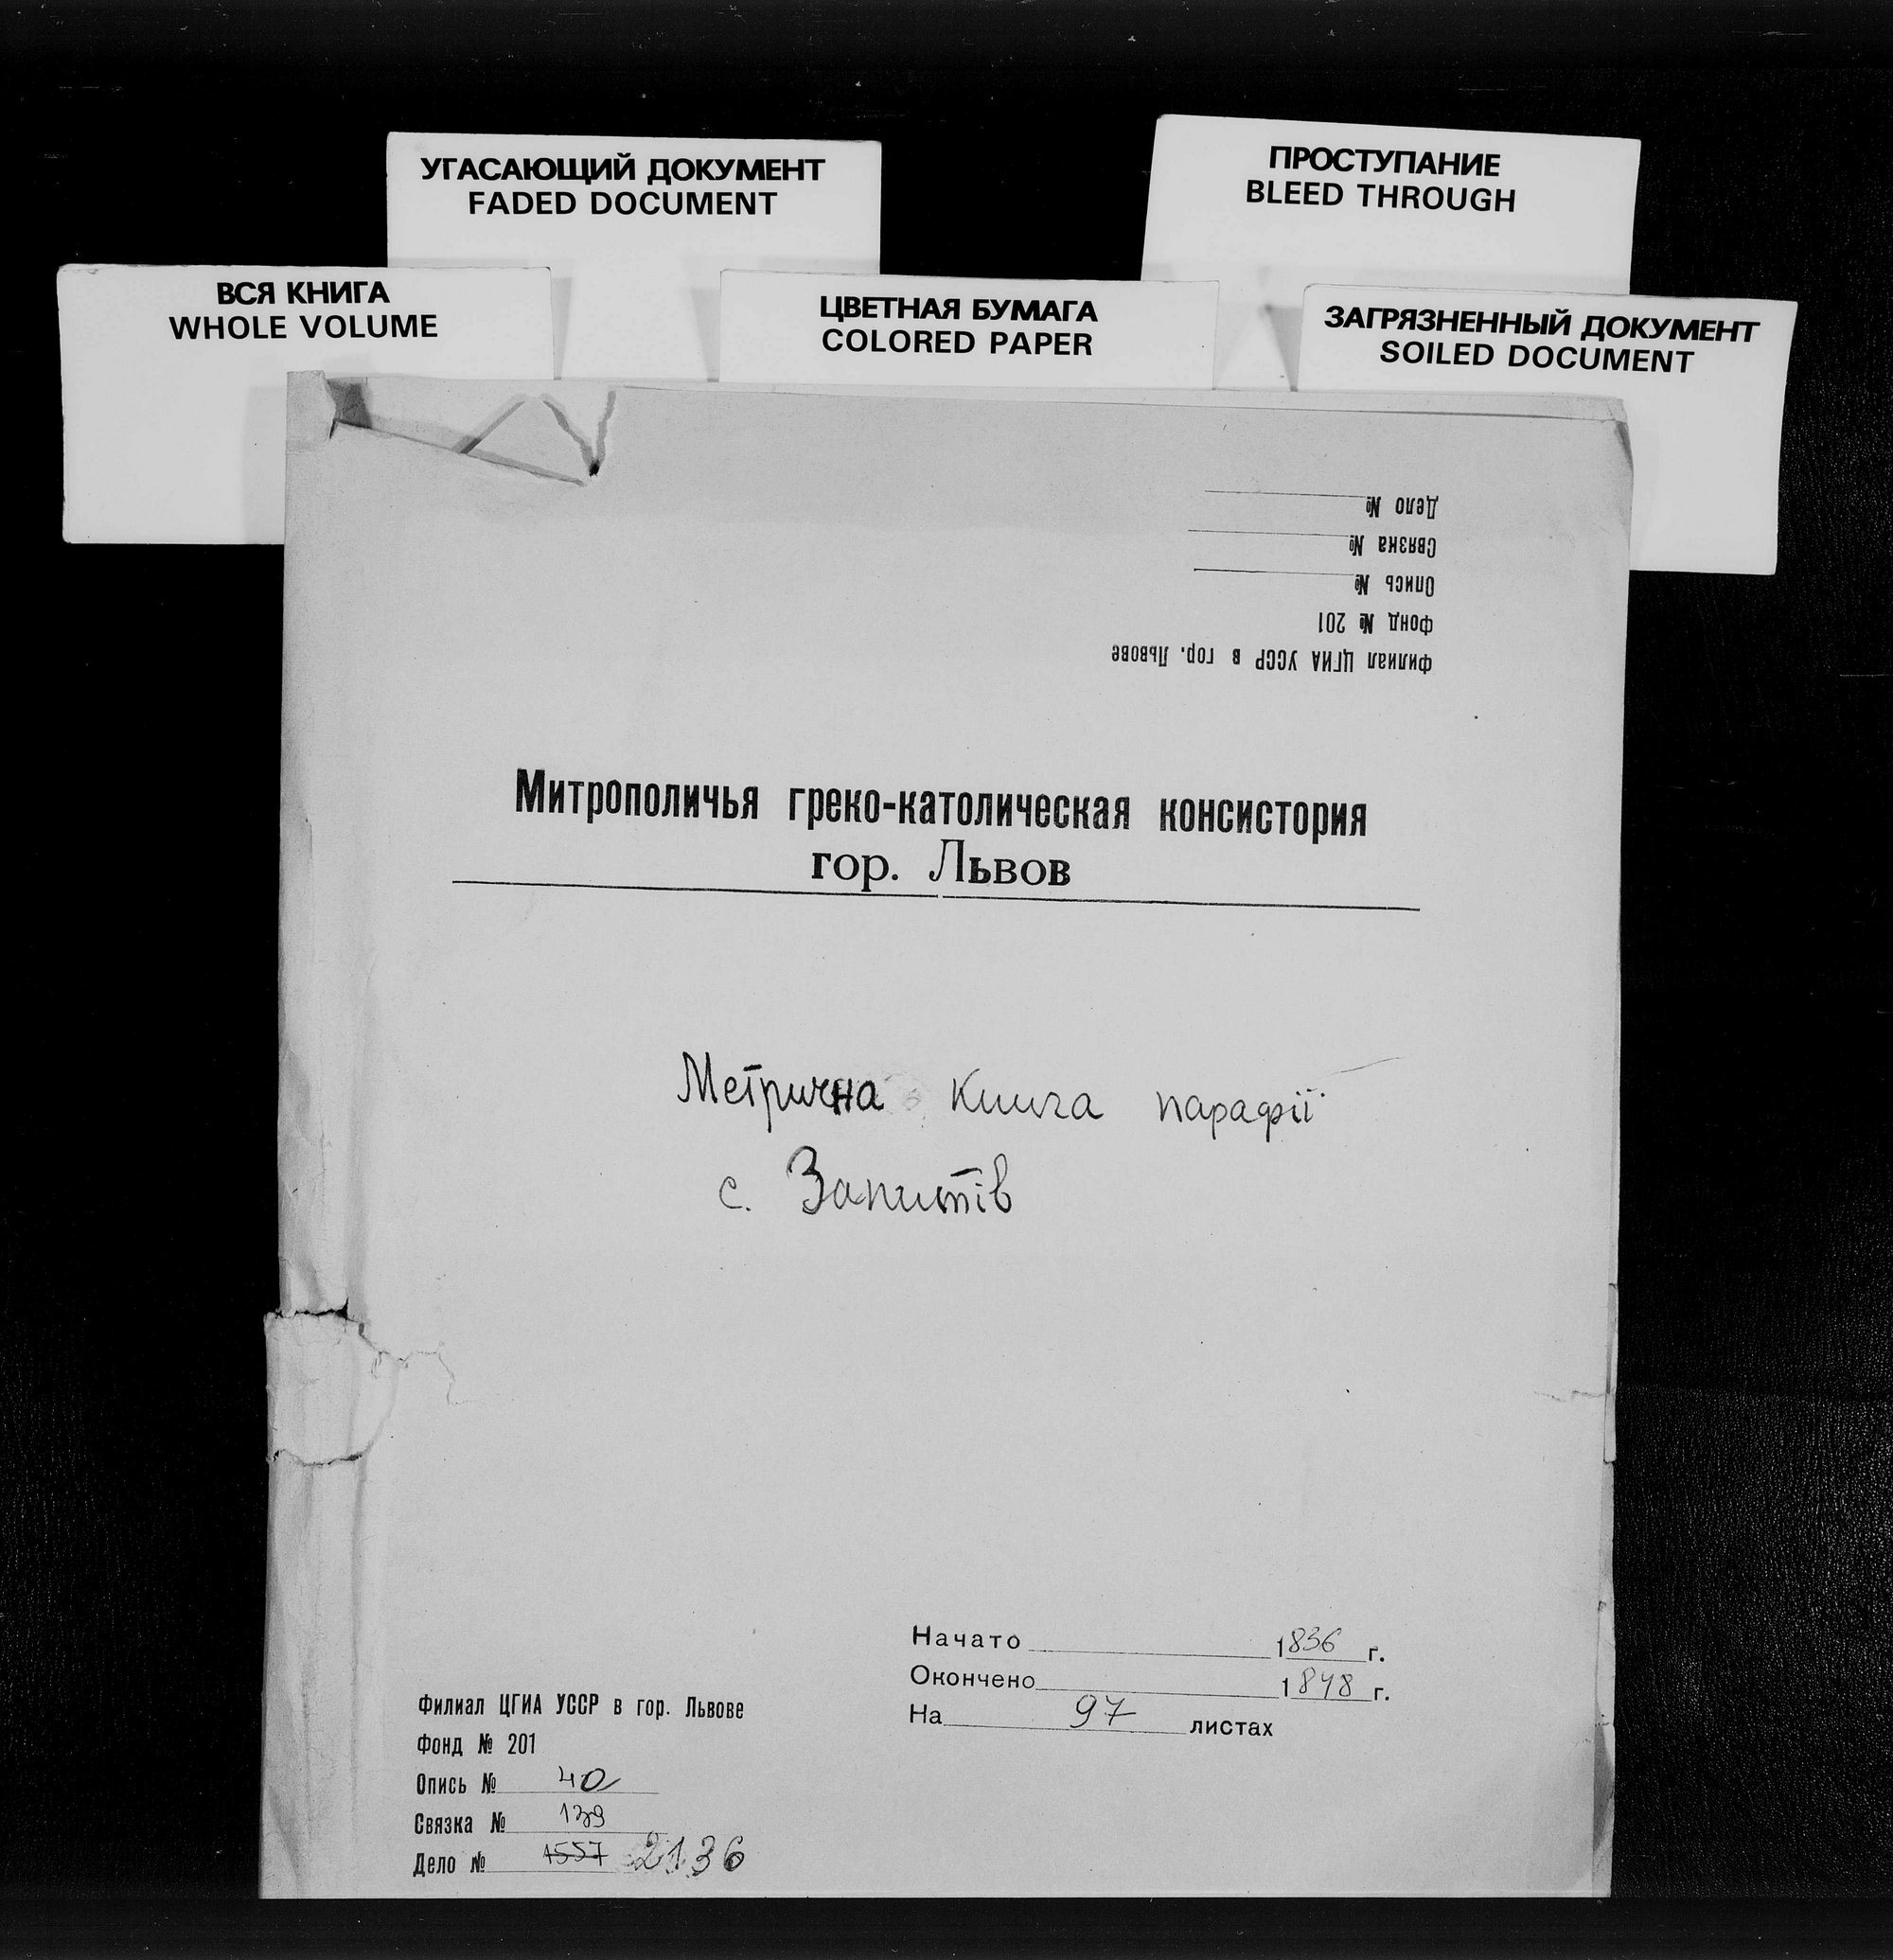 УГАСАЮЩИЙ ДОКУМЕНТ
FADED DOCUMENT
ПРОСТУПАНИЕ
BLEED THROUGH
ВСЯ КНИГА
WHOLE VOLUME
ЦВЕТНАЯ БУМАГА
COLORED PAPER
ЗАГРЯЗНЕННЫЙ ДОКУМЕНТ
SOILED DOCUMENT
Филиал ЦГИА УССР в гор. Львове
Фонд № 201
Опись №
Связка №
Дело №
Митрополичья греко-католическая консистория
гор. Львов
Метрична книга парафії
с. Запитів
Начато 1836 г.
Окончено 1848 г.
На 97 листах
Филиал ЦГИА УССР в гор. Львове
Фонд № 201
Опись № 40
Связка № 139
Дело № 1557 2136